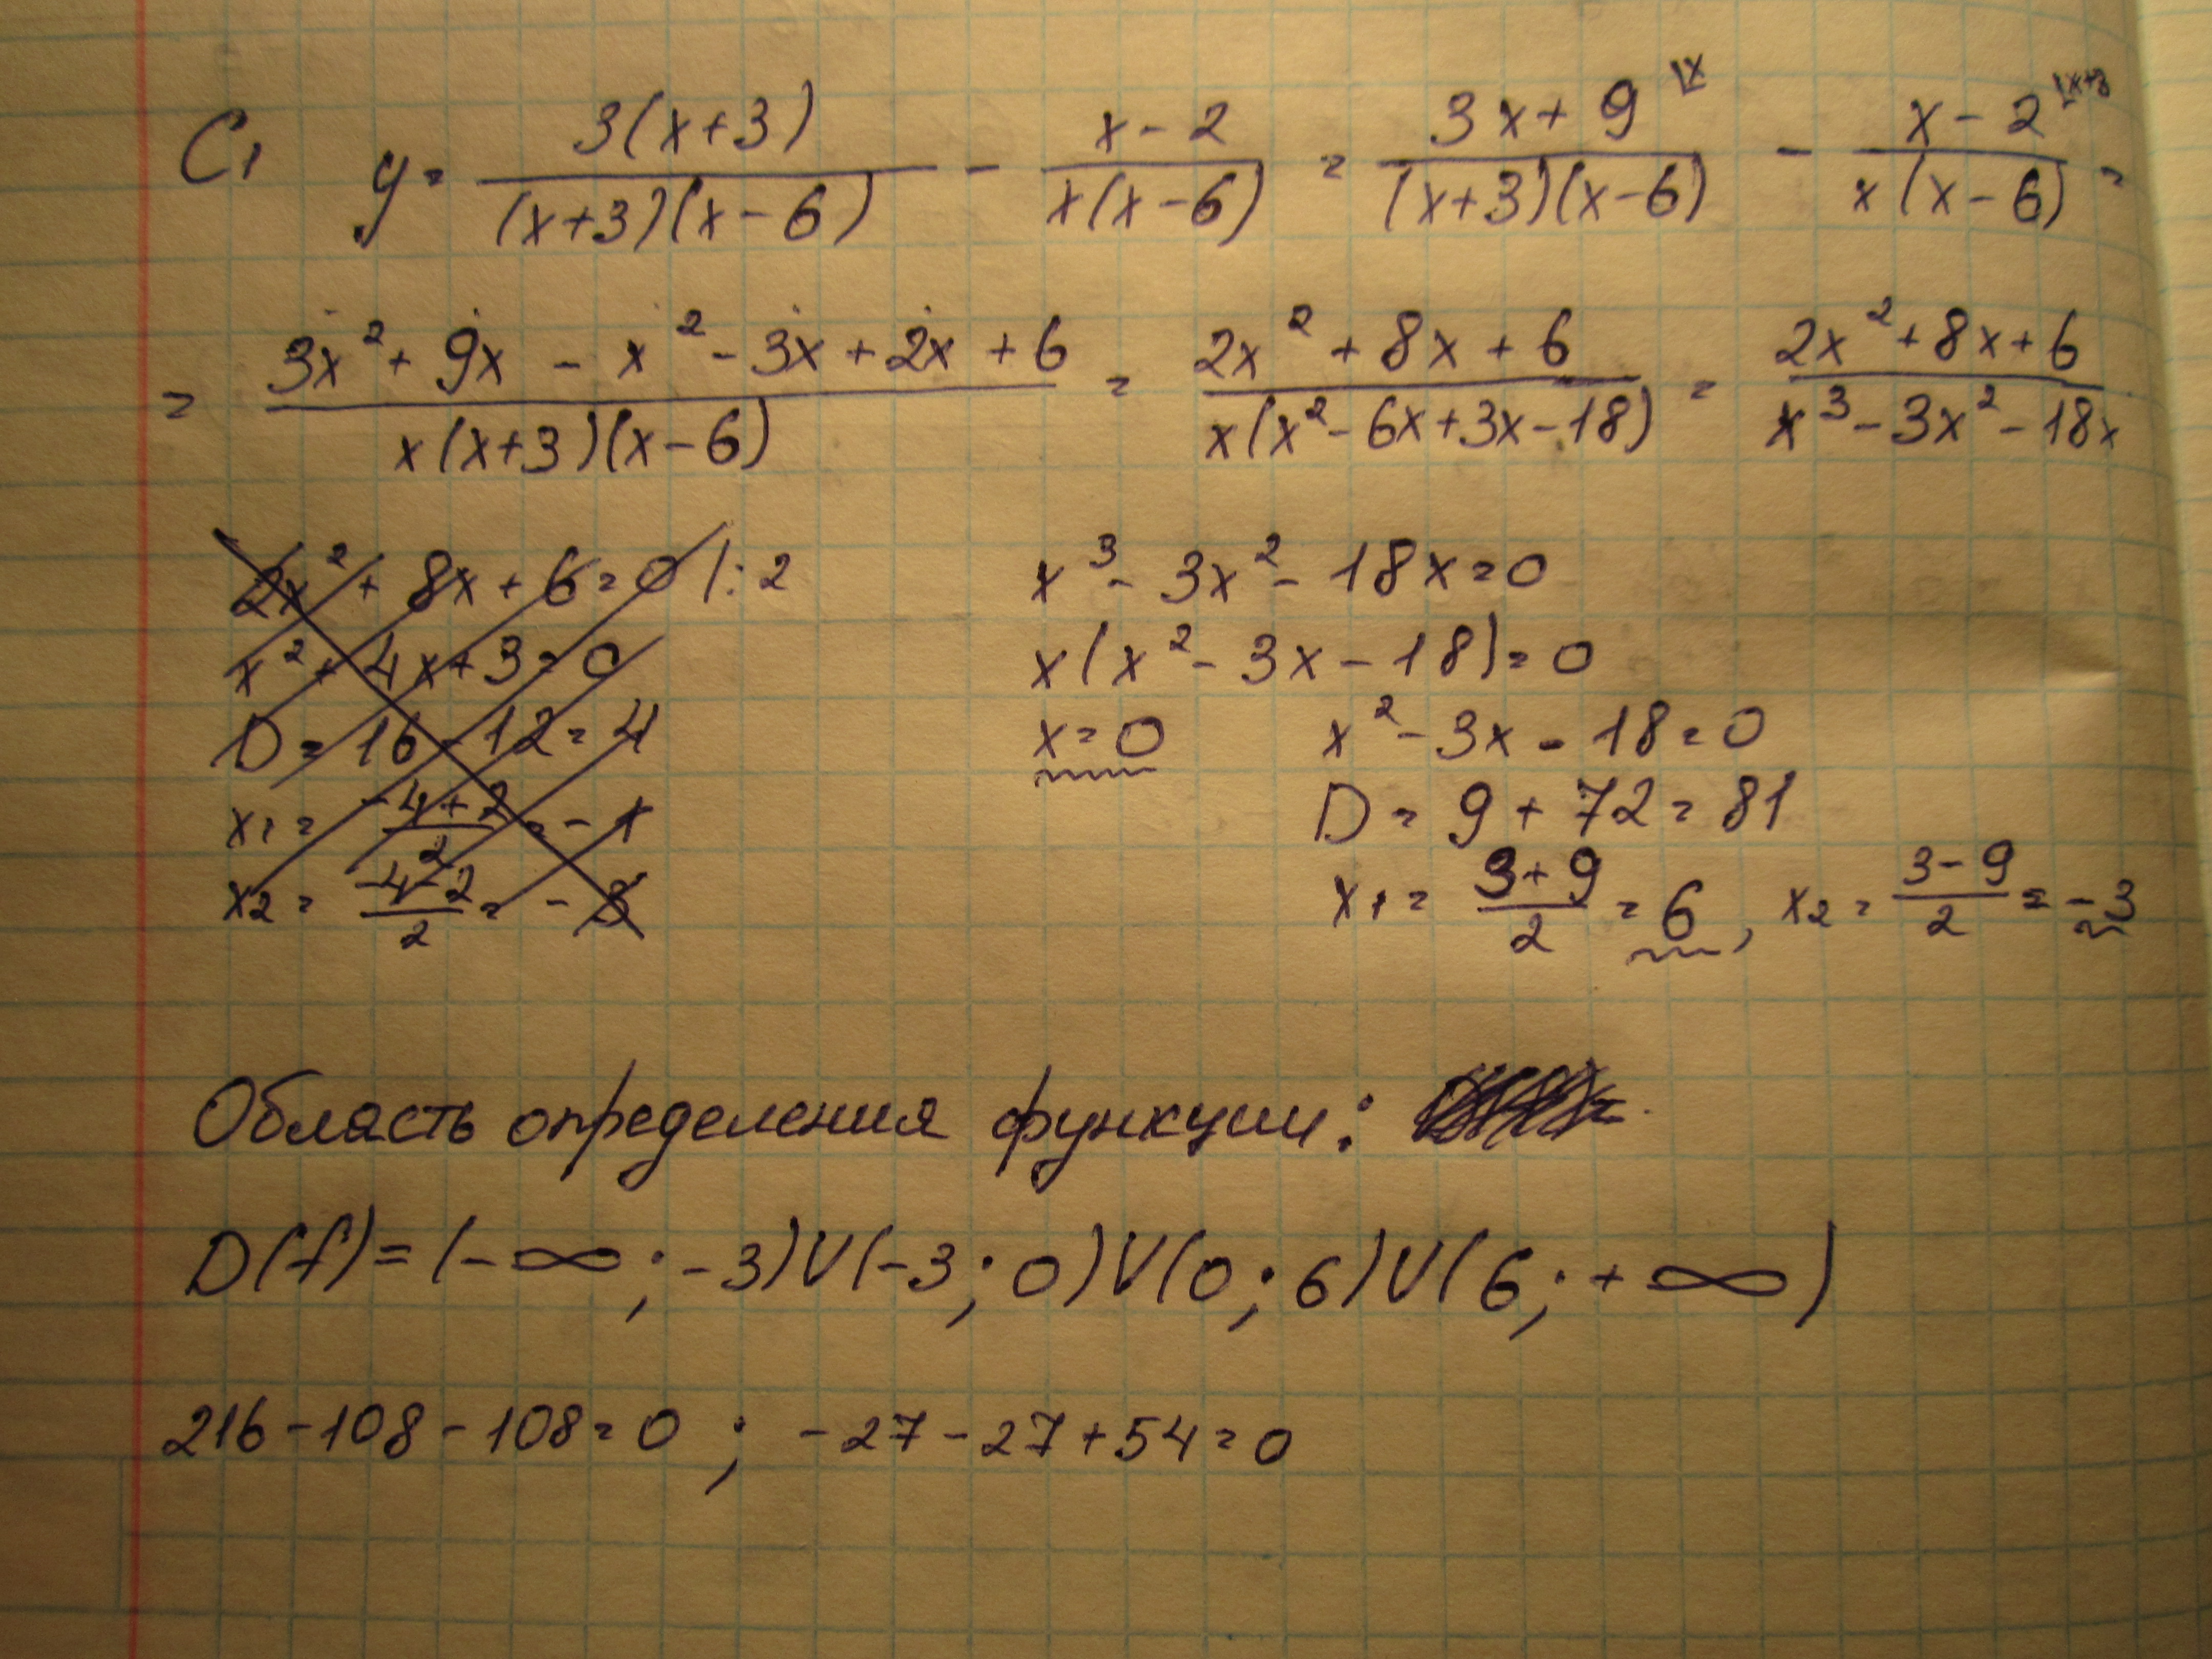 C1 y = 3(x+3) / (x+3)(x-6) - x-2 / x(x-6) = 3x+9 ⌊x / (x+3)(x-6) - x-2 ⌊x+3 / x(x-6) =
= 3x² + 9x - x² - 3x + 2x + 6 / x(x+3)(x-6) = 2x² + 8x + 6 / x(x² - 6x + 3x - 18) = 2x² + 8x + 6 / x³ - 3x² - 18x
2x² + 8x + 6 = 0 |: 2
x² + 4x + 3 = 0
D = 16 - 12 = 4
x1 = -4+2 / 2 = -1
x2 = -4-2 / 2 = -3
x³ - 3x² - 18x = 0
x(x² - 3x - 18) = 0
x = 0 x² - 3x - 18 = 0
D = 9 + 72 = 81
x1 = 3+9 / 2 = 6, x2 = 3-9 / 2 = -3
Область определения функции:
D(f) = (-∞; -3)U(-3; 0)U(0; 6)U(6; +∞)
216 - 108 - 108 = 0 ; -27 - 27 + 54 = 0